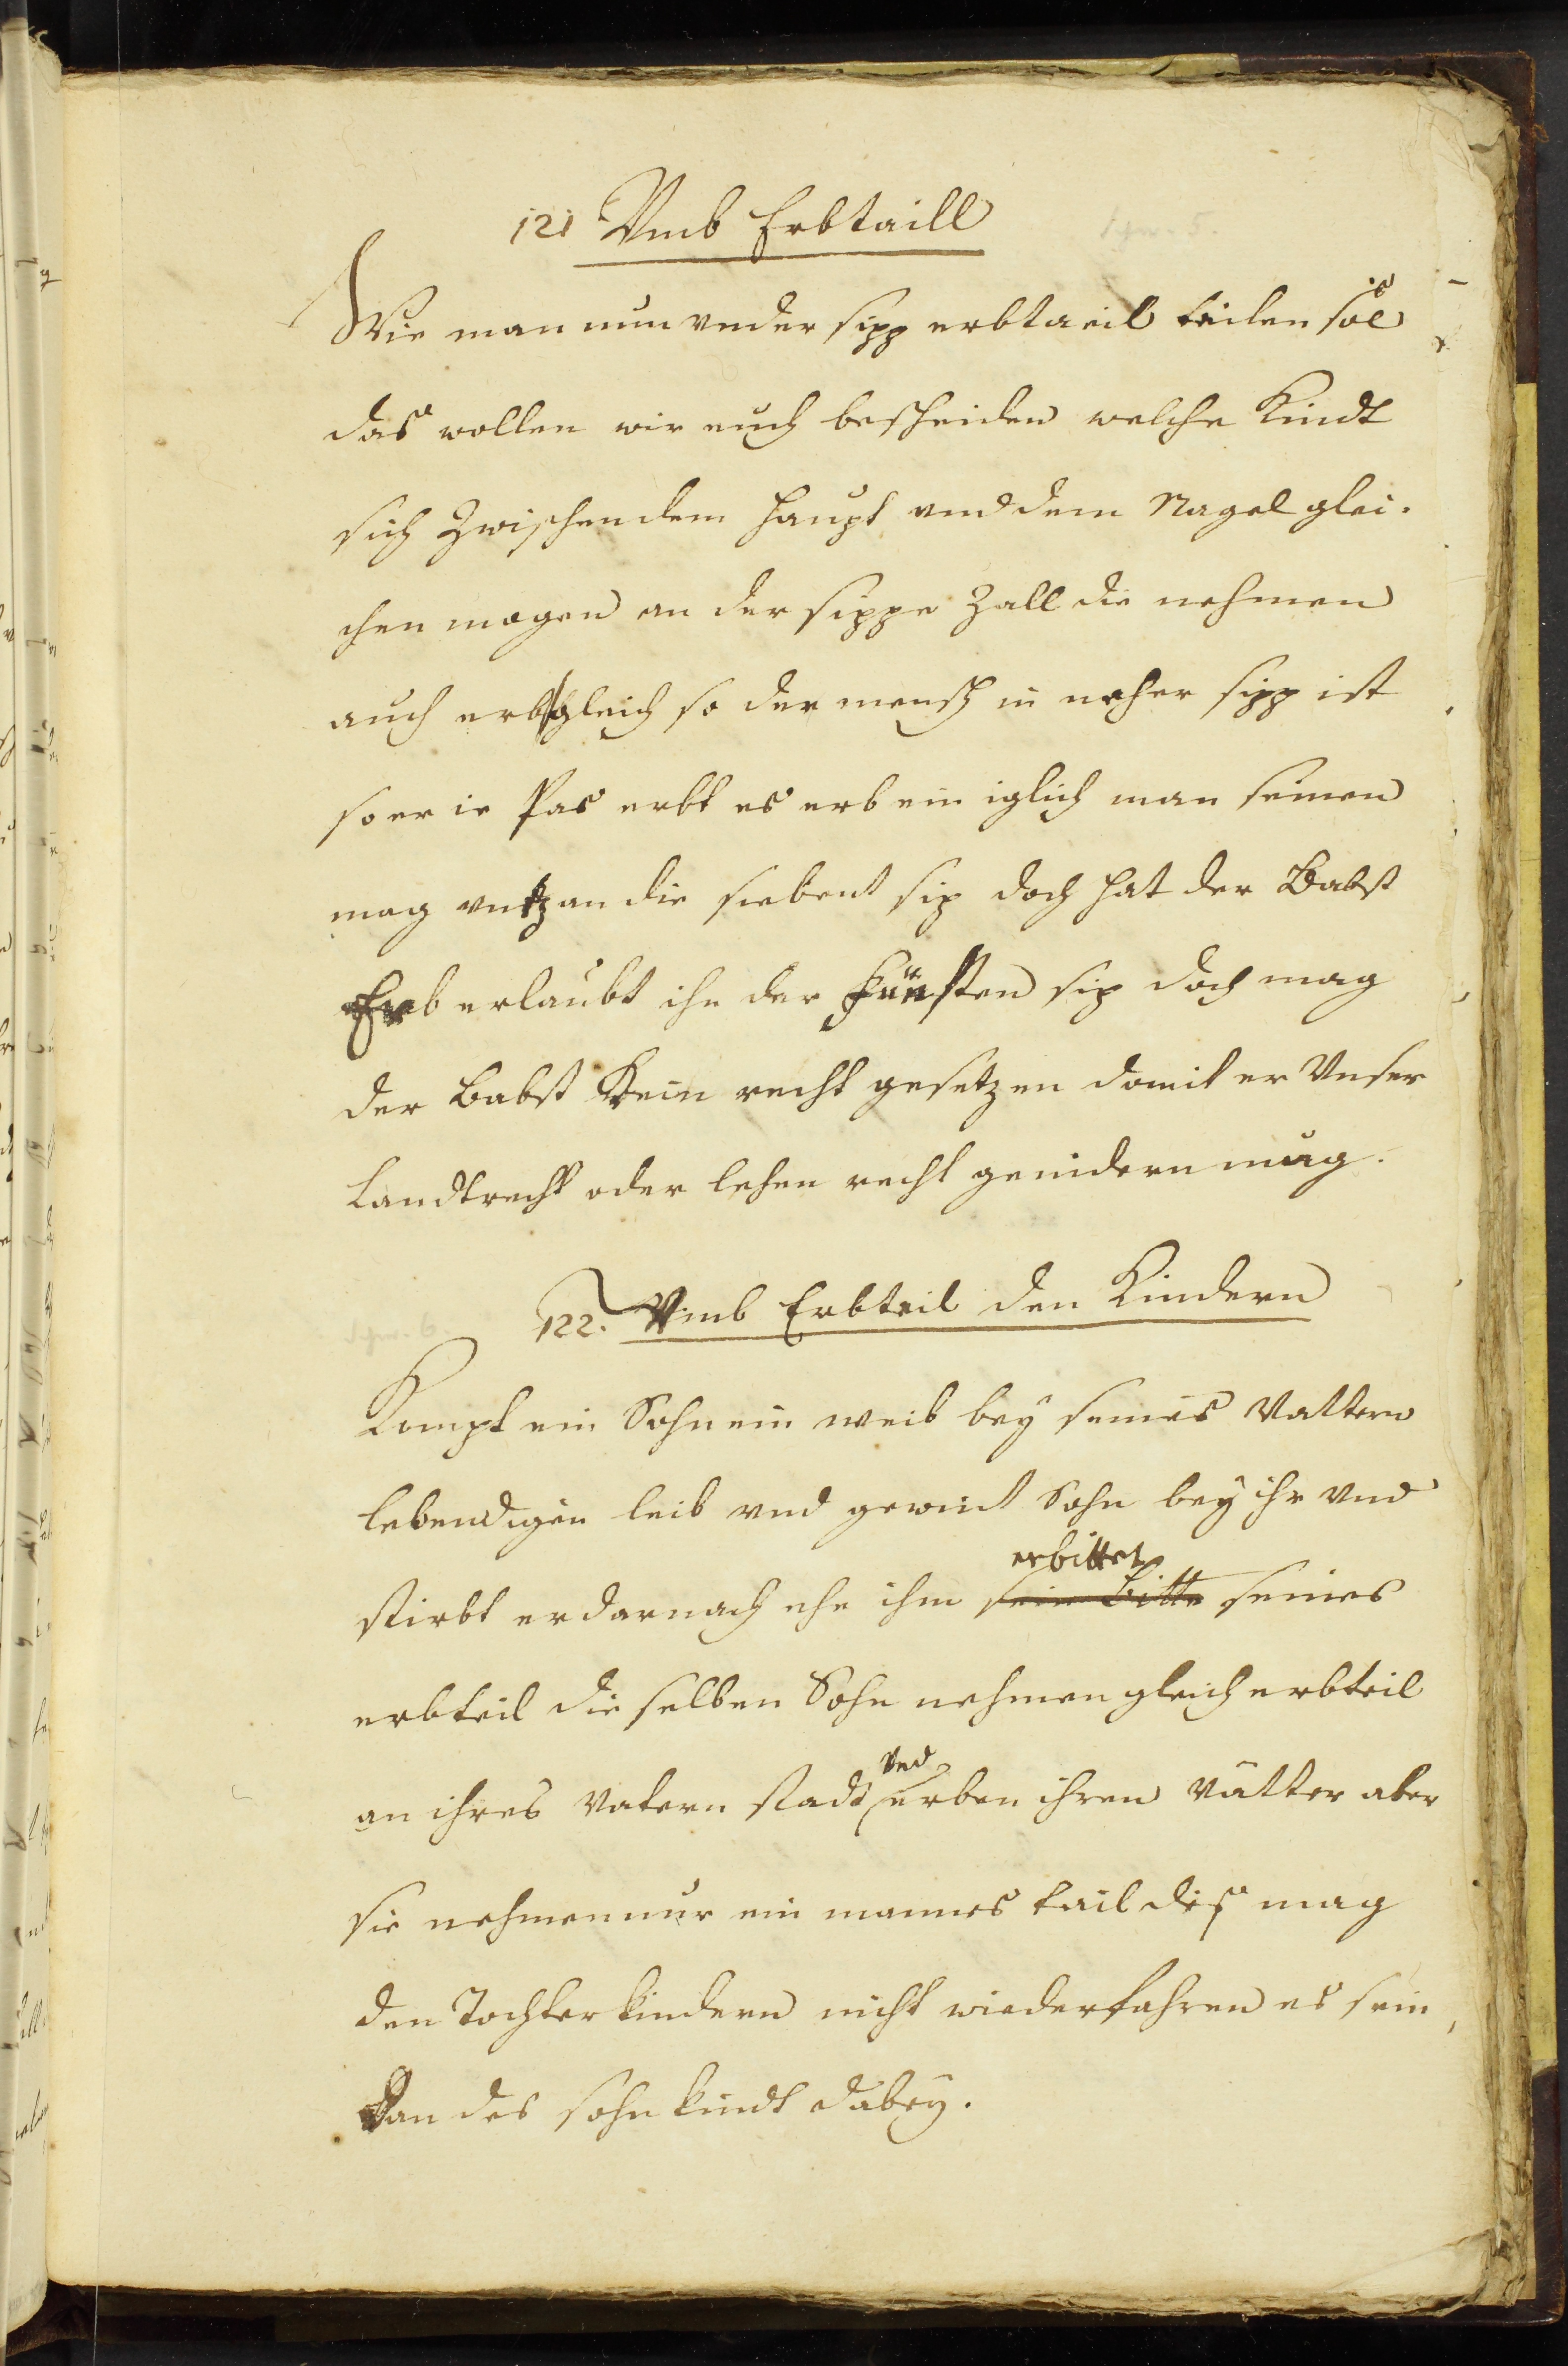 121 Vmb Erbtaill
Wie man nun vnder sipp erbtaeil teilen sol
das wollen wir euch bescheiden welche Kindt
sich Zwischen dem haupt vnd dem Nagel glei.
chen mogen an der sippe Zall die nehmen
auch erb gleich so der mensch in neher sipp ist
so er ie Pas erbt es erb ein iglich man seinen
mag vntz an die siebent sip doch hat der Babst
Erb erlaubt ihn der fünften sip doch mag
der Babst Kein recht gesetzen domit er Vnser
Landtrecht oder lehen recht genidern mug.
122. Vmb Erbteil den Kindern
Kompt ein Sohn ein weib bey seines Vattern
lebendigen leib vnd gewint Sohn bey ihr vnd
erbittet
stirbt er darnach ehe ihm sein bitte seines
erbteil die selben Sohn nehmen gleich erbteil
Vnd
an ihres Vatern stadt erben ihren Vätter aber
sie nehmen nur ein mannes tail dis mag
den Tochter kindern nicht wiederfahren es sein
Dan des sohn kindt dabey.